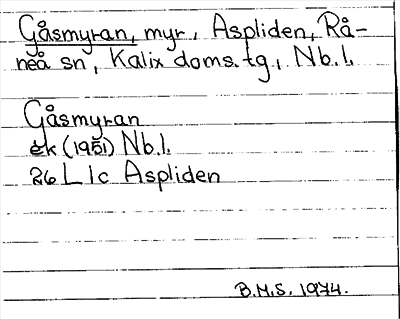 Gåsmyran, myr, Aspliden, Rå-
neå sn, Kalix doms.tg., Nb.l.
Gåsmyran
ek (1951) Nb.l.
26 L 1c Aspliden
B.M.S. 1974.